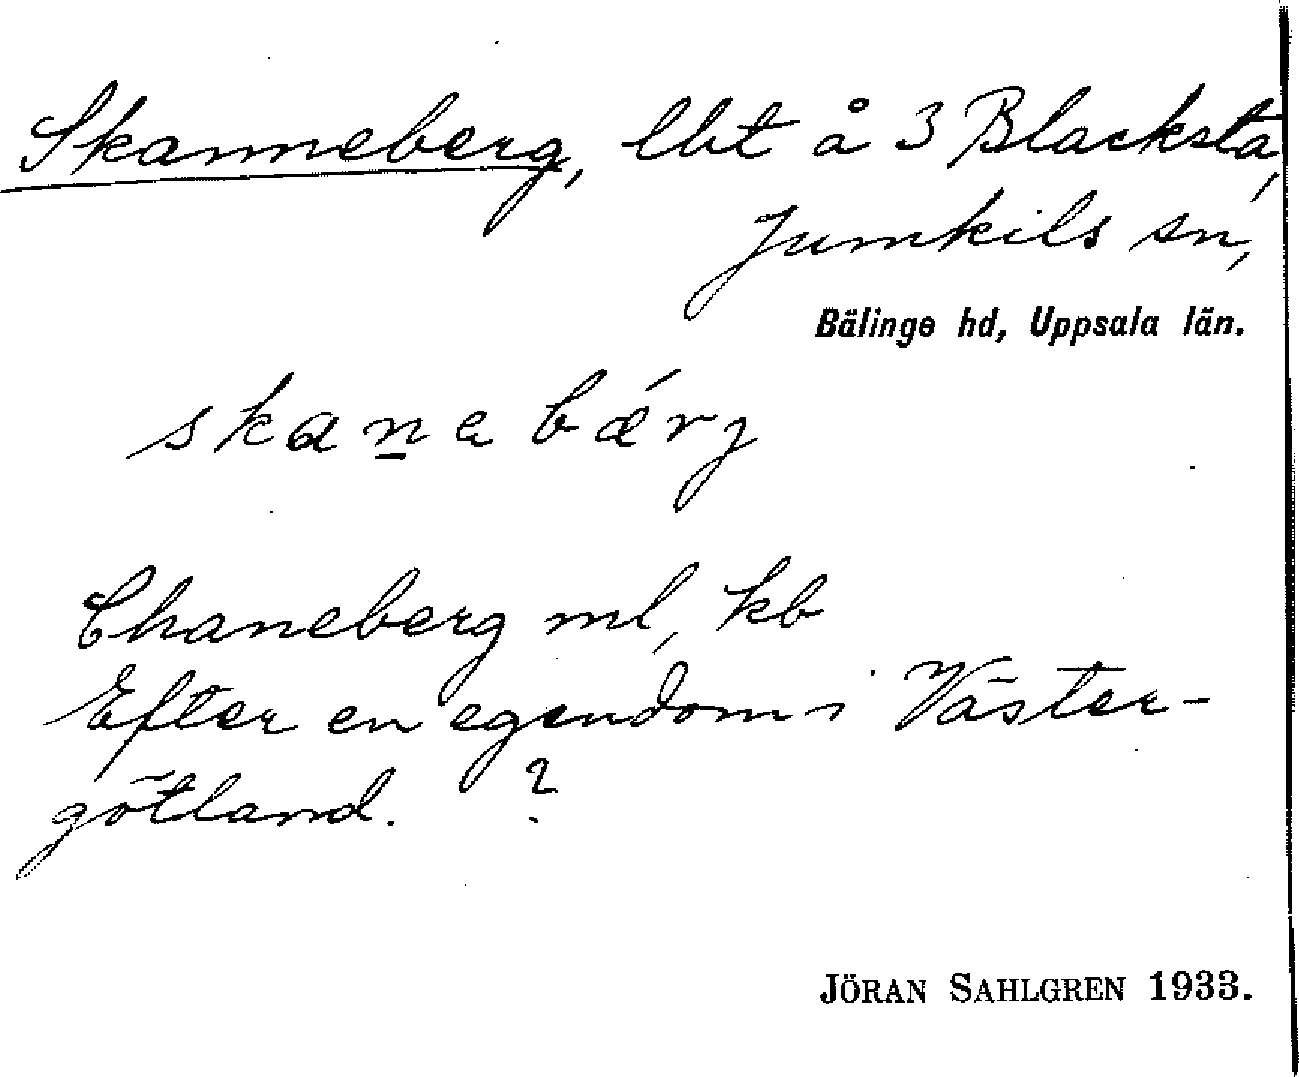 Skanneberg, lht å 3 Blacksta,
Jumkils sn,
Bälinge hd, Uppsala län.
skan̲ebǽrj
Chaneberg ml, kb
Efter en egendom i Väster-
götland. ?
JÖRAN SAHLGREN 1933.